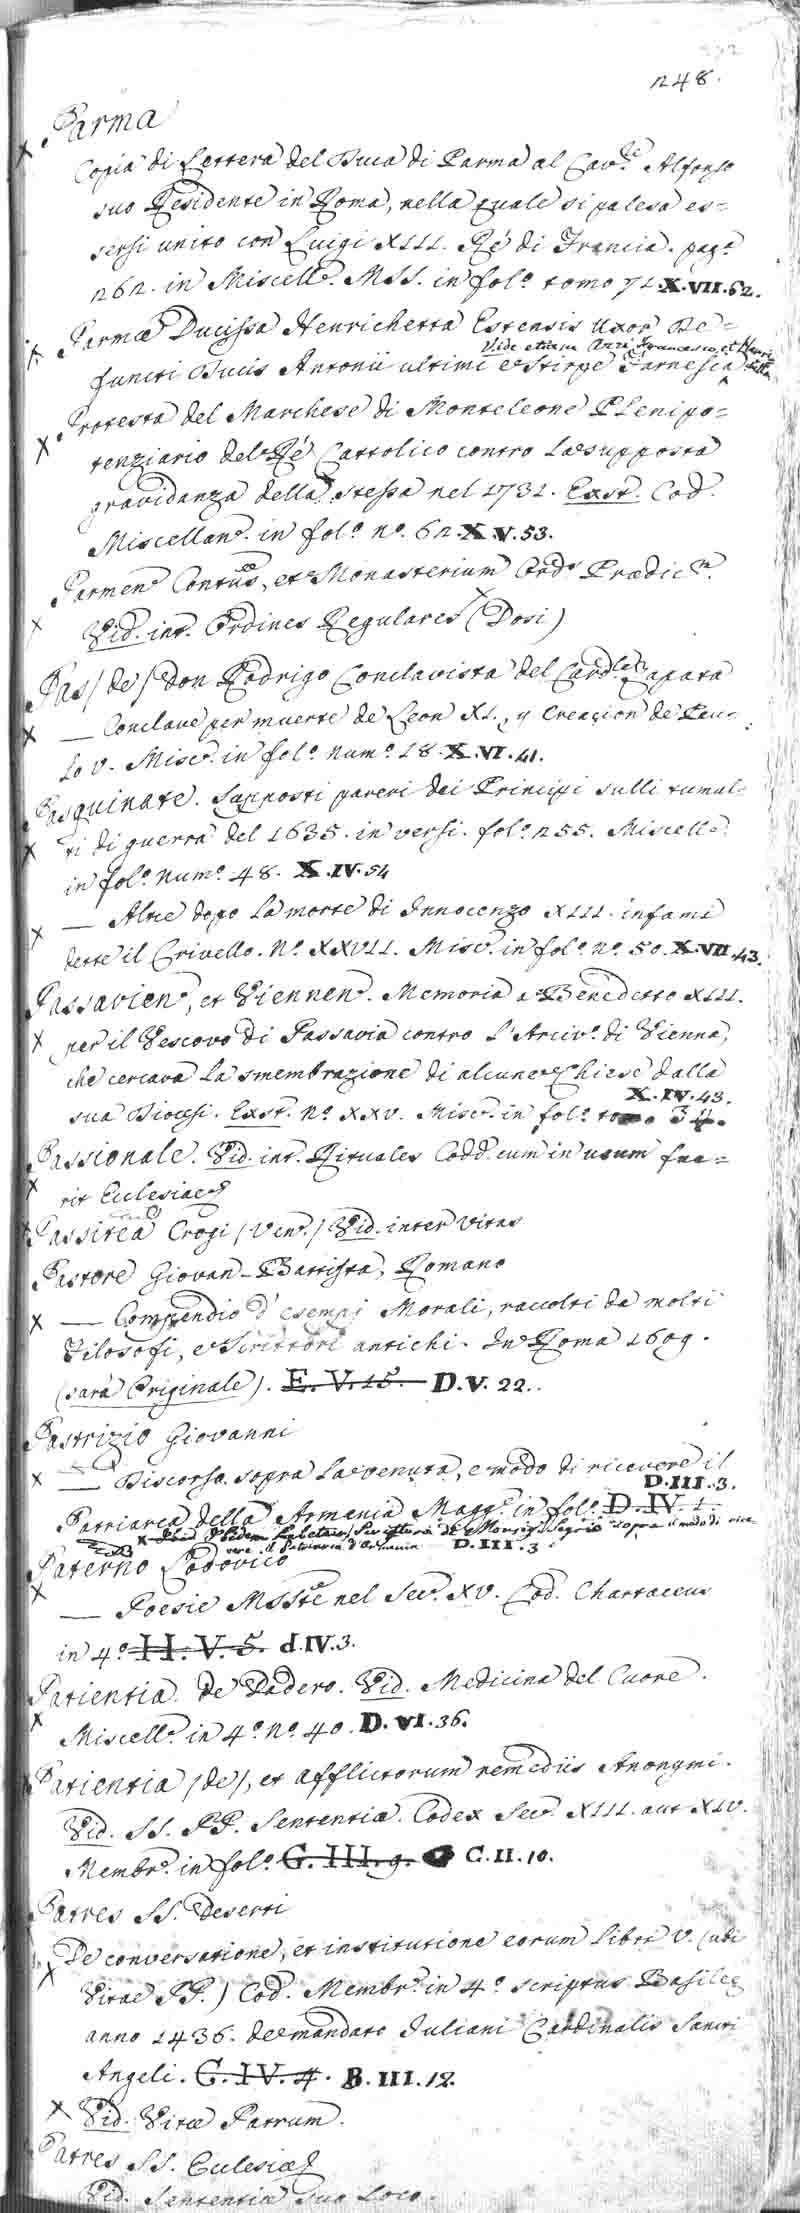 248.
Parma
Copia di Lettera del Duca di Parma al Cav.re Alfonso
suo Residente in Roma, nella quale si palesa es=
sersi unito con Luigi XIII. Ré di Francia. pag.a
262. in Miscell.e MSS. in fol.o tomo 71. X.VII.62.
Parmæ Ducissa Henrichetta Estensis uxor De=
Vide etiam Francesco, et Henri
functi Ducis Antonii ultimi e Stirpe Farnesia
Protesta del Marchese di Monteleone Plenipo=
tenziario del Ré Cattolico contro la supposta
gravidanza della stessa nel 1731. Exst. Cod.
Miscellan. in fol.o n.o 62. X.V.53.
Parmen. Contus, et Monasterium Ord. Prædic.
Vid. int. Ordines Regulares (Dosi)
Pas (de) don Rodrigo Conclavista del Card.le Zapata
— Conclave per muerte de Leon XI., y Creacion de Pau=
lo V. Misc. in fol.o num.o 18. X.VI.41.
Pasquinate. Supposti pareri dei Principi sulli tumul=
ti di guerra del 1635. in versi. fol.o 255. Miscell.e
in fol.o num.o 48. X.IV.54
— Altre dopo la morte di Innocenzo XIII. infami
dette il Crivello. N.o XXVII. Misc. in fol.o n.o 50. X.VII.43.
Passavien, et Viennen. Memoria a Benedetto XIII.
per il Vescovo di Passavia contro l'Arciv.o di Vienna,
che cercava la smembrazione di alcune Chiese dalla
X.IV.43.
sua Diocesi. Exst. n.o XXV. Misc. in fol.o tomo 34.
Passionale. Vid. int. Rituales Codd. cum in usum fue=
rit Eclesiae
Passitea Crogi (Ven.) Vid. inter Vitas
Pastore Giovan-Battista, Romano
— Compendio d'esempj Morali, raccolti da molti
Filosofi, e Scrittori antichi. In Roma 1609.
(sarà Originale). E.V.15. D.V.22..
Pastrizio Giovanni
— Discorso sopra la venuta, e modo di ricevere il
D.III.3.
Patriarca della Armenia Magg.e in fol.o D.IV.1.
Scrittura di Monsig. sopra il modo di rice
vere il Patriarca d'Armenia D.III.3
Paterno Lodovico
— Poesie MSSte nel Sec. XV. Cod. Chartaceus
in 4.o H.V.5. d.IV.3.
Patientia de Padero. Vid. Medicina del Cuore.
Miscell. in 4.o n.o 40. D.VI.36.
Patientia (de), et afflictorum remediis Anonymi.
Vid. SS. PP. Sententiæ. Codex Sec. XIII. aut XIV.
Membr. in fol.o G.III.9. C.II.10.
Patres SS. Deserti
De conversatione, et institutione eorum Libri V. (ubi
Vitae PP.) Cod. Membr. in 4.o scriptus Basileę
anno 1436. de mandato Juliani Cardinalis Sancti
Angeli. G.IV.4. B.III.12.
Vid. Vitæ Patrum.
Patres SS. Eclesiæ
Vid. Sententiæ suo Loco.